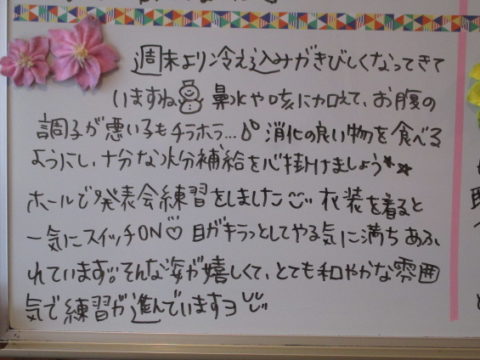 週末より冷え込みがきびしくなってきて
いますね 鼻水や咳に加えて、お腹の
調子が悪い子もチラホラ… 消化の良い物を食べる
ようにし、十分な水分補給を心掛けましょう
ホールで発表会練習をしました 衣装を着ると
一気にスイッチON♡ 目がキラッとしてやる気に満ちあふ
れています。そんな姿が嬉しくて、とても和やかな雰囲
気で練習が進んでいますヨ